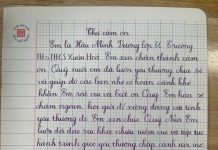 Thư cảm ơn
Em là Hầu Minh Trường lớp 3C Trường
TH & THCS Xuân Hoà Em xin chân thành cảm
ơn Quỹ nuôi em đã luôn yêu thương, chia sẻ
và giúp đỡ các bạn nhỏ có hoàn cảnh khó
khăn Em rất vui và biết ơn Quỹ Em hứa sẽ
chăm ngoan học giỏi để xứng đáng với tình
yêu thương đó Em xin chúc Quỹ Nuôi Em
luôn dồi dào sức khoẻ nhiều niềm vui và tiếp tục
hành trình gieo yêu thương thắp sáng ước mơ